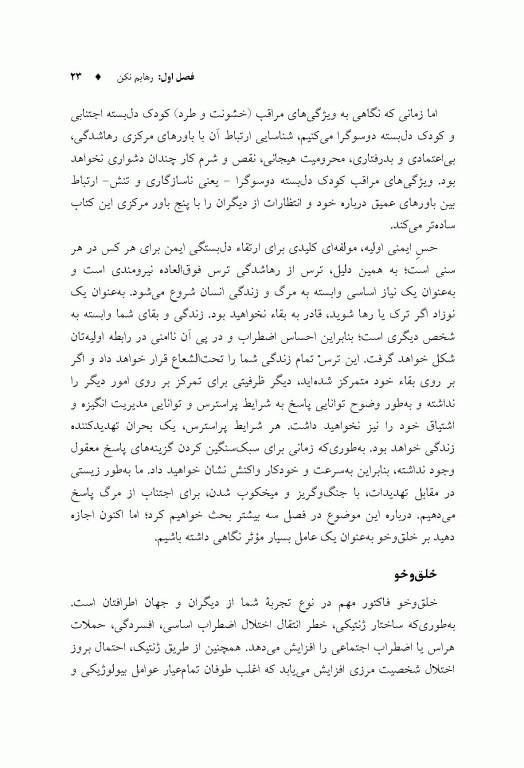 فصل اول: رهایم نکن ♦ ۲۳
اما زمانی که نگاهی به ویژگی‌های مراقب (خشونت و طرد) کودک دل‌بسته اجتنابی
و کودک دل‌بسته دوسوگرا می‌کنیم، شناسایی ارتباط آن با باورهای مرکزی رهاشدگی،
بی‌اعتمادی و بدرفتاری، محرومیت هیجانی، نقص و شرم کار چندان دشواری نخواهد
بود. ویژگی‌های مراقب کودک دل‌بسته دوسوگرا – یعنی ناسازگاری و تنش– ارتباط
بین باورهای عمیق درباره خود و انتظارات از دیگران را با پنج باور مرکزی این کتاب
ساده‌تر می‌کند.
حسِ ایمنی اولیه، مولفه‌ای کلیدی برای ارتقاء دل‌بستگی ایمن برای هر کس در هر
سنی است؛ به همین دلیل، ترس از رهاشدگی ترس فوق‌العاده نیرومندی است و
به‌عنوان یک نیاز اساسی وابسته به مرگ و زندگی انسان شروع می‌شود. به‌عنوان یک
نوزاد اگر ترک یا رها شوید، قادر به بقاء نخواهید بود. زندگی و بقای شما وابسته به
شخص دیگری است؛ بنابراین احساس اضطراب و در پی آن ناامنی در رابطه اولیه‌تان
شکل خواهد گرفت. این ترسْ تمام زندگی شما را تحت‌الشعاع قرار خواهد داد و اگر
بر روی بقاء خود متمرکز شده‌اید، دیگر ظرفیتی برای تمرکز بر روی امور دیگر را
نداشته و به‌طور وضوح توانایی پاسخ به شرایط پراسترس و توانایی مدیریت انگیزه و
اشتیاق خود را نیز نخواهید داشت. هر شرایط پراسترس، یک بحران تهدیدکننده
زندگی خواهد بود. به‌طوری‌که زمانی برای سبک‌سنگین کردن گزینه‌های پاسخ معقول
وجود نداشته، بنابراین به‌سرعت و خودکار واکنش نشان خواهید داد. ما به‌طور زیستی
در مقابل تهدیدات، با جنگ‌وگریز و میخکوب شدن، برای اجتناب از مرگ پاسخ
می‌دهیم. درباره این موضوع در فصل سه بیشتر بحث خواهیم کرد؛ اما اکنون اجازه
دهید بر خلق‌وخو به‌عنوان یک عامل بسیار مؤثر نگاهی داشته باشیم.
خلق‌وخو
خلق‌وخو فاکتور مهم در نوع تجربهٔ شما از دیگران و جهان اطرافتان است.
به‌طوری‌که ساختار ژنتیکی، خطر انتقال اختلال اضطراب اساسی، افسردگی، حملات
هراس یا اضطراب اجتماعی را افزایش می‌دهد. همچنین از طریق ژنتیک، احتمال بروز
اختلال شخصیت مرزی افزایش می‌یابد که اغلب طوفان تمام‌عیار عوامل بیولوژیکی و